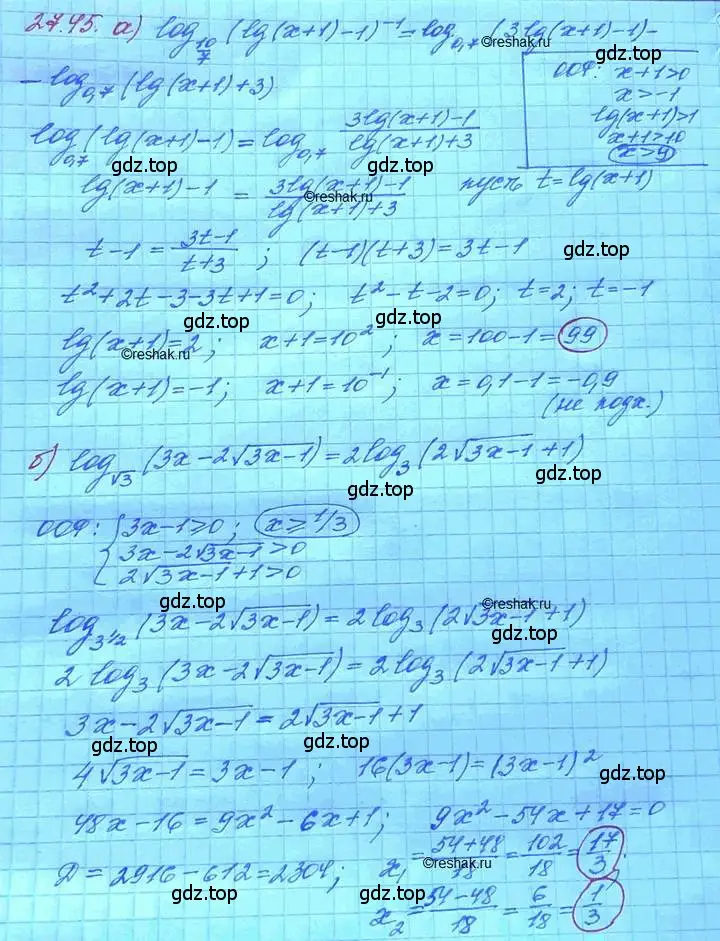 27.45. а) log_{10/7} (lg(x+1)-1)^{-1} = log_{0,7} (3lg(x+1)-1)-
©reshak.ru
- log_{0,7} (lg(x+1)+3)
ООФ: x+1>0
x>-1
lg(x+1)>1
x+1>10
x>9
log_{0,7} (lg(x+1)-1) = log_{0,7} \frac{3lg(x+1)-1}{lg(x+1)+3}
gdz.top gdz.top
lg(x+1)-1 = \frac{3lg(x+1)-1}{lg(x+1)+3} пусть t=lg(x+1)
t-1 = \frac{3t-1}{t+3}; (t-1)(t+3)=3t-1
gdz.top
t²+2t-3-3t+1=0; t²-t-2=0; t=2; t=-1
gdz.top gdz.top
lg(x+1)=2; x+1=10²; x=100-1=99
©reshak.ru
gdz.top
lg(x+1)=-1; x+1=10^{-1}; x=0,1-1=-0,9
(не подх.)
gdz.top
б) log_{√3} (3x-2√(3x-1)) = 2log_3 (2√(3x-1)+1)
gdz.top
ООФ: { 3x-1≥0; x≥1/3
3x-2√(3x-1)>0
2√(3x-1)+1>0
gdz.top
©reshak.ru
log_{3^{1/2}} (3x-2√(3x-1)) = 2log_3 (2√(3x-1)+1)
gdz.top
2 log_3 (3x-2√(3x-1)) = 2log_3 (2√(3x-1)+1)
3x-2√(3x-1) = 2√(3x-1)+1
gdz.top gdz.top
4√(3x-1) = 3x-1; 16(3x-1)=(3x-1)²
gdz.top
48x-16=9x²-6x+1; 9x²-54x+17=0
gdz.top
Д=2916-612=2304; x₁=\frac{54+48}{18}=\frac{102}{18}=\frac{17}{3};
©reshak.ru
x₂=\frac{54-48}{18}=\frac{6}{18}=\frac{1}{3}.
gdz.top